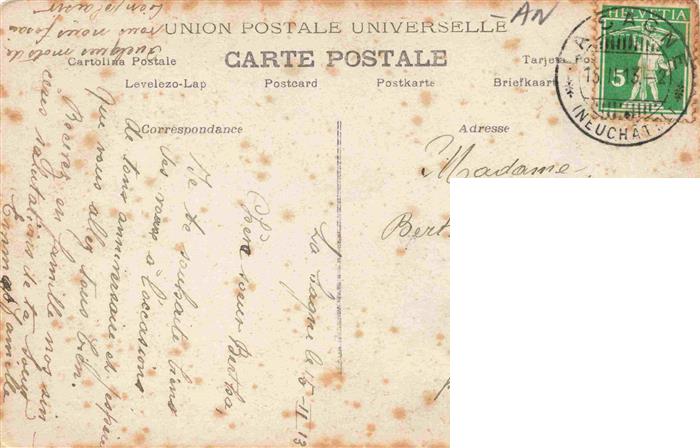 AN
UNION POSTALE UNIVERSELLE
CARTE POSTALE
Cartolina Postale
Levelezo-Lap
Postcard
Postkarte
Briefkaart
Correspondance
Adresse
HELVETIA
5
(NEUCHAT
Madame,
Bert
La Sagne le 15-II-13
Chère sœur Bertha,
Je te souhaite biens
les vœux à l'occasions
de tons anniversaire et j'espère
que vous allez tous bien.
Recevez en famille nos sin
cères salutations de ta sœur
Emma & famille
quelques mots de